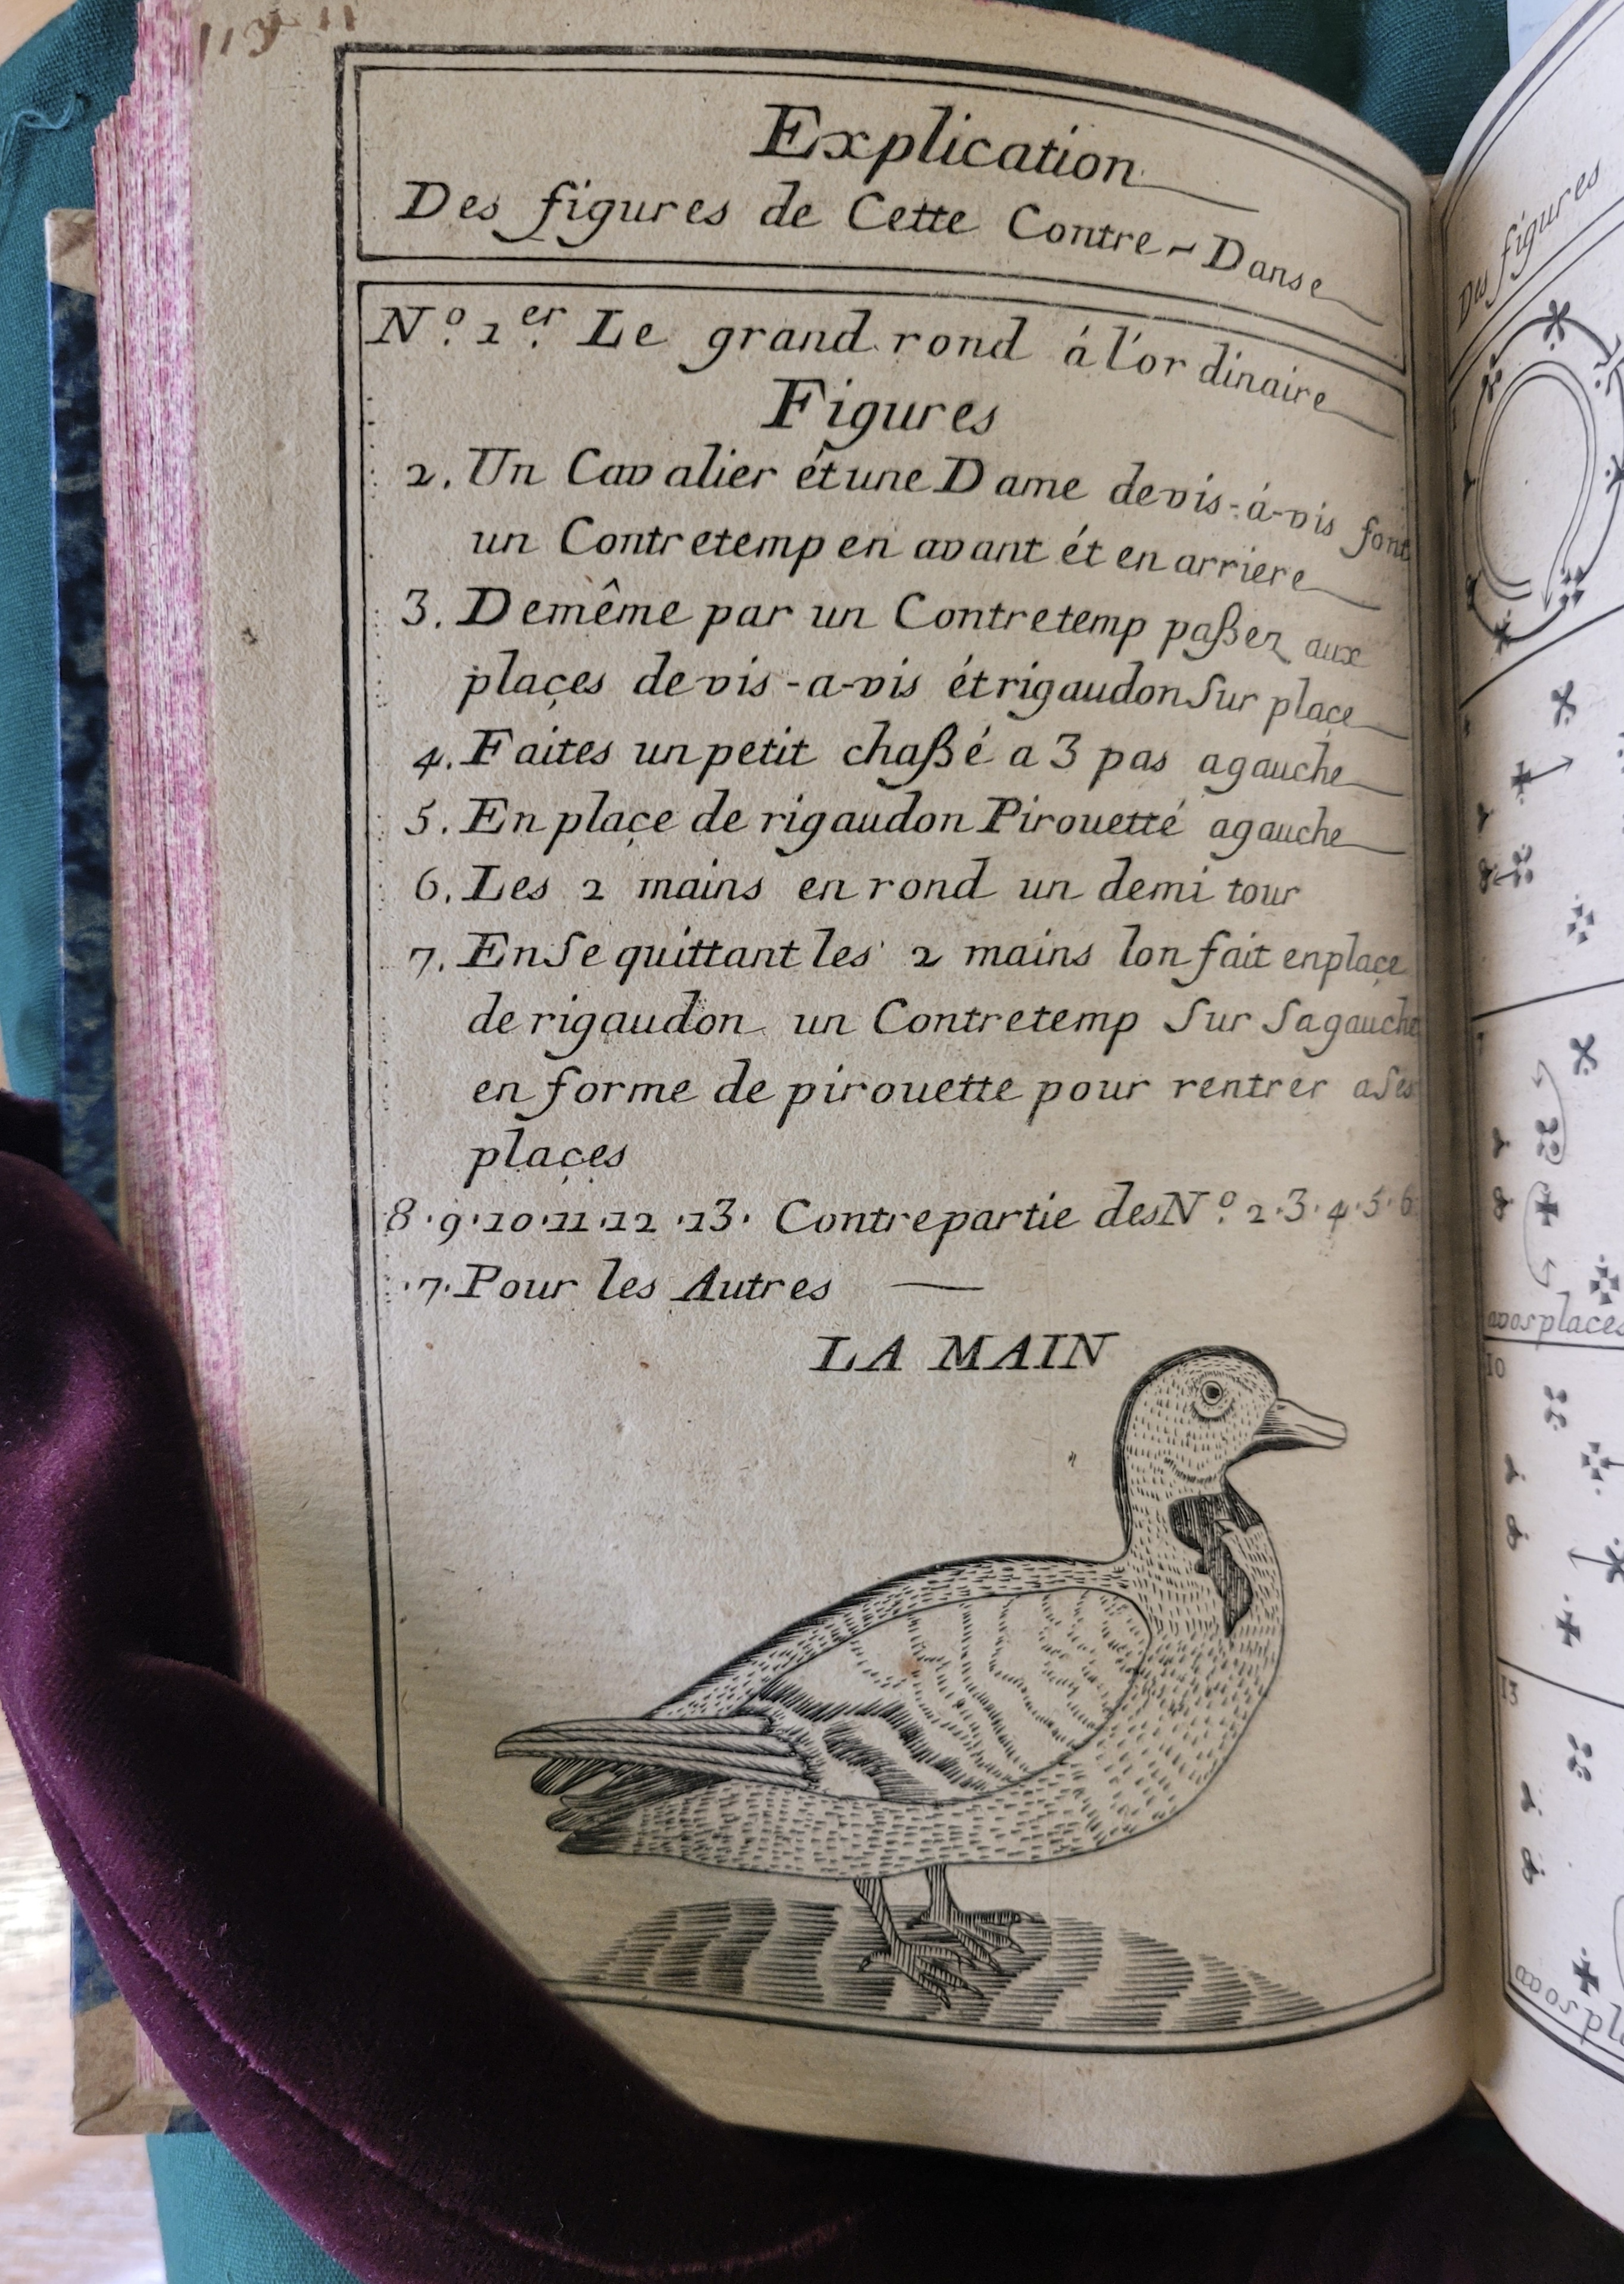 Explication
Des figures de Cette Contre-Danse
N.º 1.er Le grand rond á l'ordinaire
Figures
2. Un Cavalier ét une Dame de vis-á-vis font
un Contretemp en avant ét en arriere
3. De même par un Contretemp paßez aux
plaçes de vis-a-vis ét rigaudon Sur plaçe
4. Faites un petit chaßé a 3 pas a gauche
5. En plaçe de rigaudon Pirouetté a gauche
6. Les 2 mains en rond un demi tour
7. En Se quittant les 2 mains lon fait en plaçe
de rigaudon un Contretemp Sur Sa gauche
en forme de pirouette pour rentrer a Ses
plaçes
8·9·10·11·12·13· Contrepartie des N.º 2·3·4·5·6·
·7· Pour les Autres
LA MAIN
Des figures
avos places
10
13
avos pl